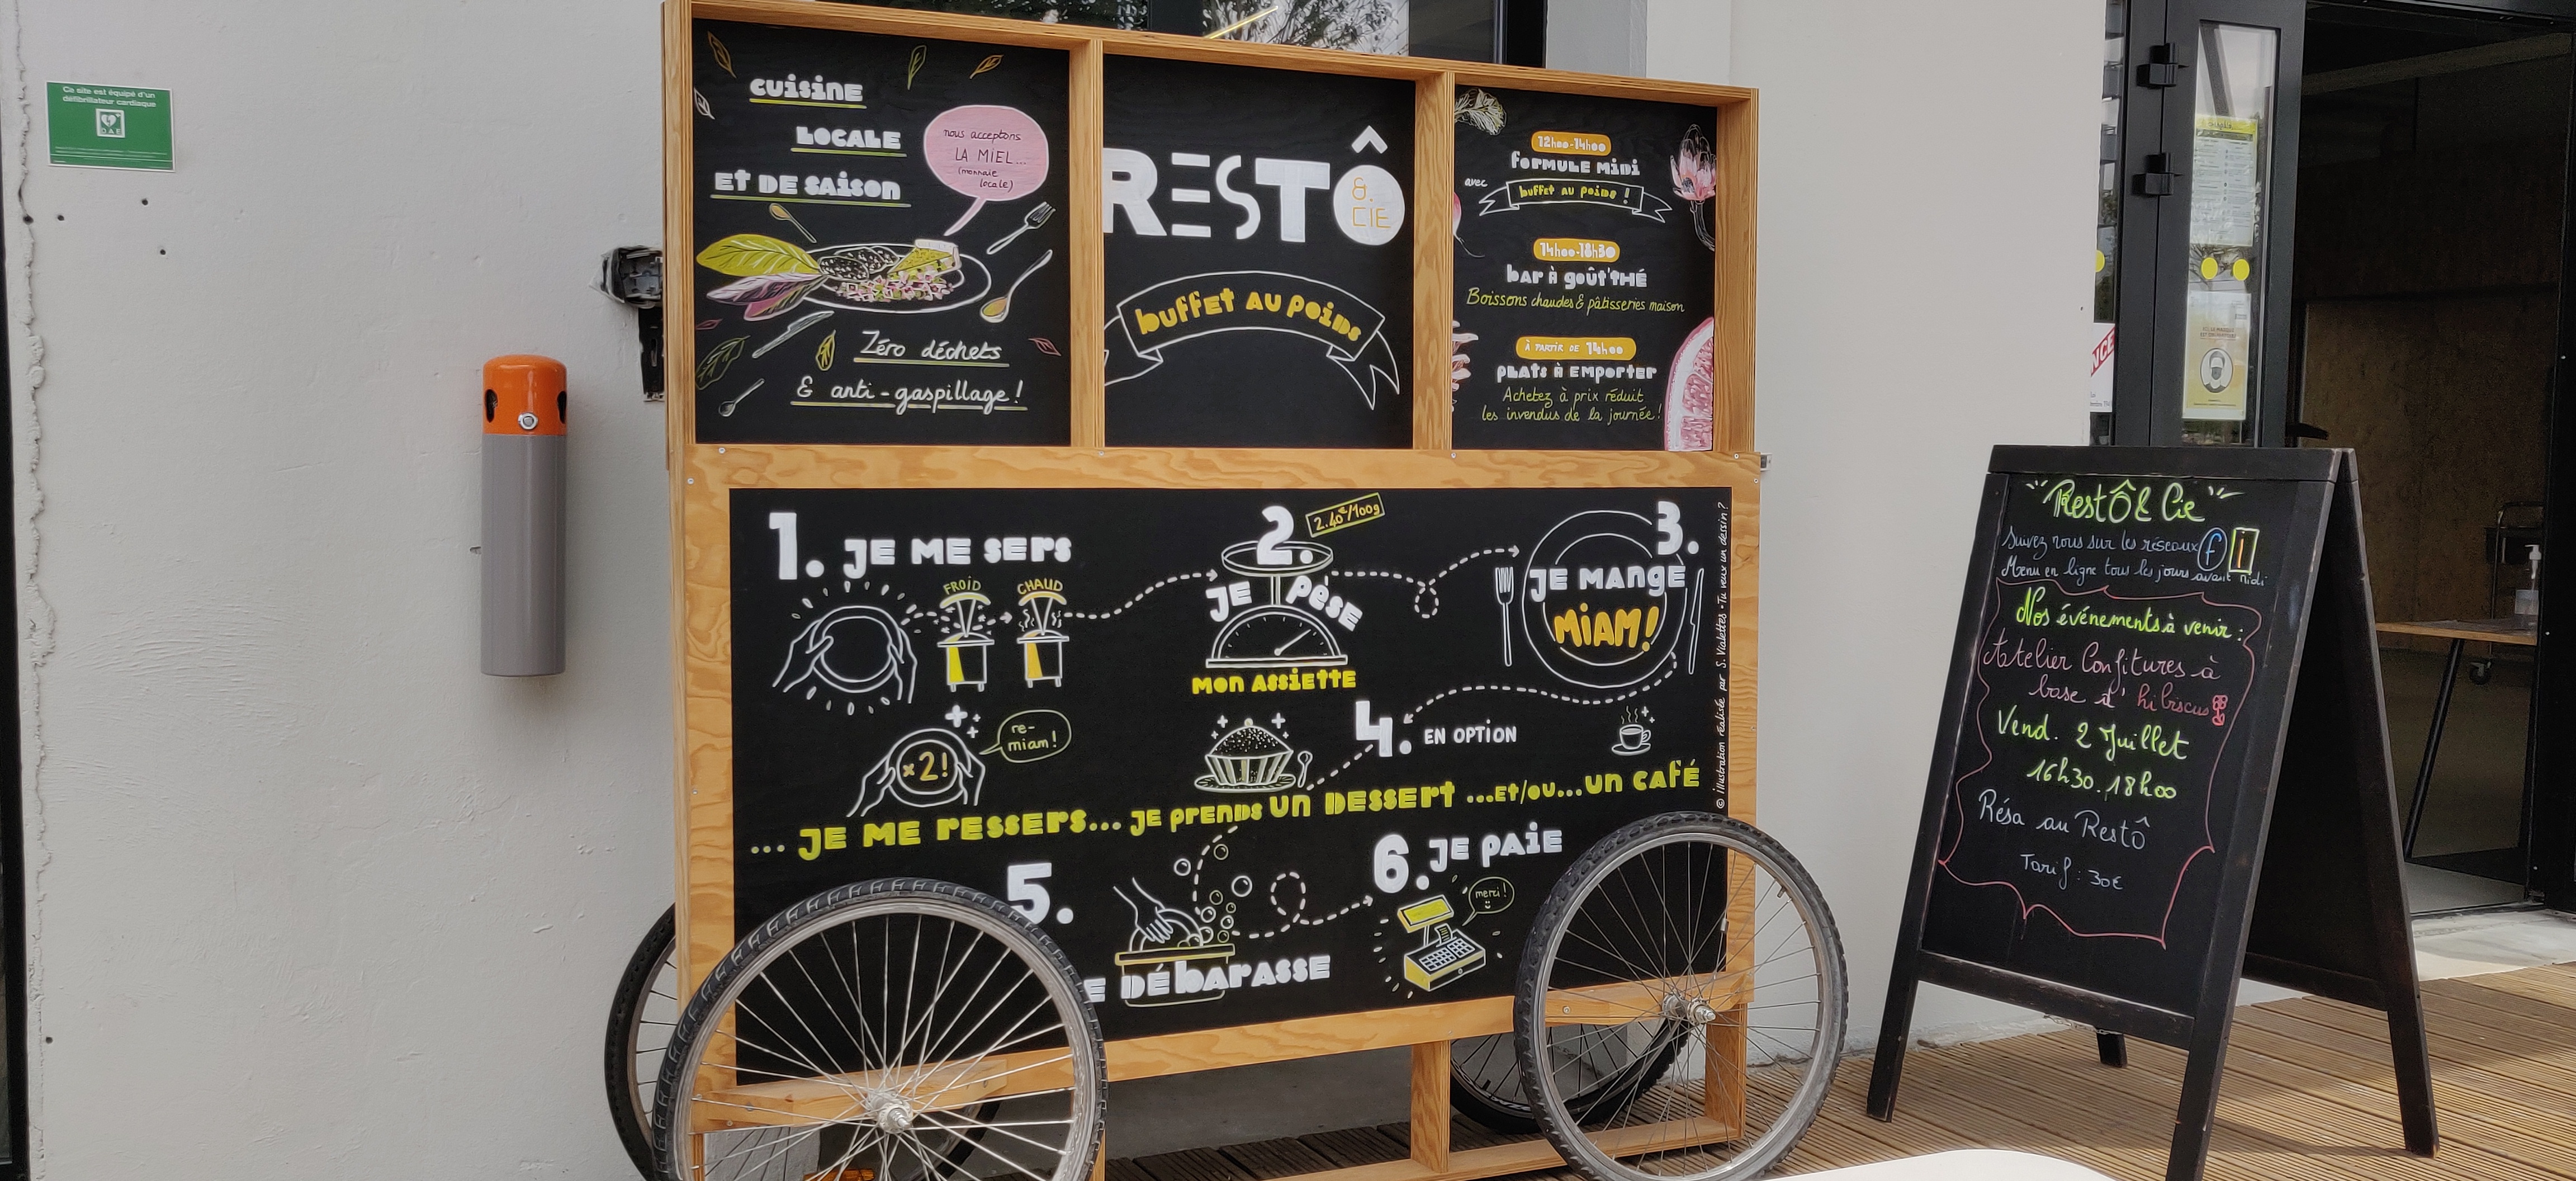 Ce site est équipé d'un
défibrillateur cardiaque
DAE
cuisine
LOCALE
Et DE SAison
nous acceptons
LA MIEL...
(monnaie
locale)
Zéro déchets
& anti-gaspillage !
RESTÔ
&
CIE
buffet AU poids
12h00-14h00
formule Midi
avec
buffet au poids !
14h00-18h30
bar à goût'thé
Boissons chaudes & pâtisseries maison
À PARTIR DE 14h00
plats à emporter
Achetez à prix réduit
les invendus de la journée !
1. JE ME SERS
FROID
CHAUD
2.
2.40€/100g
JE pèse
MON ASSIETTE
3.
JE MANGE
MIAM!
x2!
re-
miam!
4. EN OPTION
... JE ME RESSERS... JE PRENDS UN DESSERT ...ET/OU... UN CAFÉ
5.
E DÉbarasse
6. JE PAIE
merci!
© illustration réalisée par S. Vialettes - Tu veux un dessin ?
RestÔ & Cie
Suivez nous sur les réseaux f
Menu en ligne tous les jours avant midi
Nos événements à venir :
Atelier Confitures à
base d'hibiscus
Vend. 2 Juillet
16h30.18h00
Résa au RestÔ
Tarif : 30€